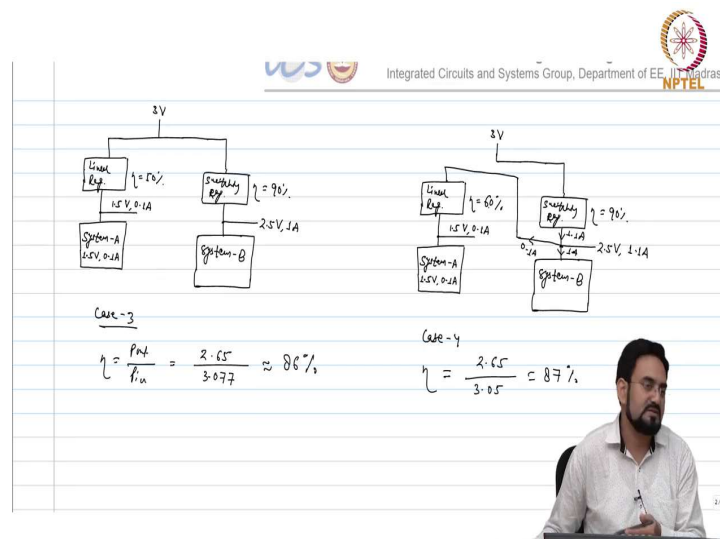 Integrated Circuits and Systems Group, Department of EE, IIT Madras
NPTEL
3V
Linear Reg.
η = 50%.
Switching Reg.
η = 90%.
1.5V, 0.1A
2.5V, 1A
System-A
1.5V, 0.1A
System-B
Case-3
η = Pout / Pin = 2.65 / 3.077 ≈ 86%
3V
Linear Reg.
η = 60%.
Switching Reg.
η = 90%.
1.5V, 0.1A
1.1A
0.1A
1A
2.5V, 1.1A
System-A
1.5V, 0.1A
System-B
Case-4
η = 2.65 / 3.05 = 87%